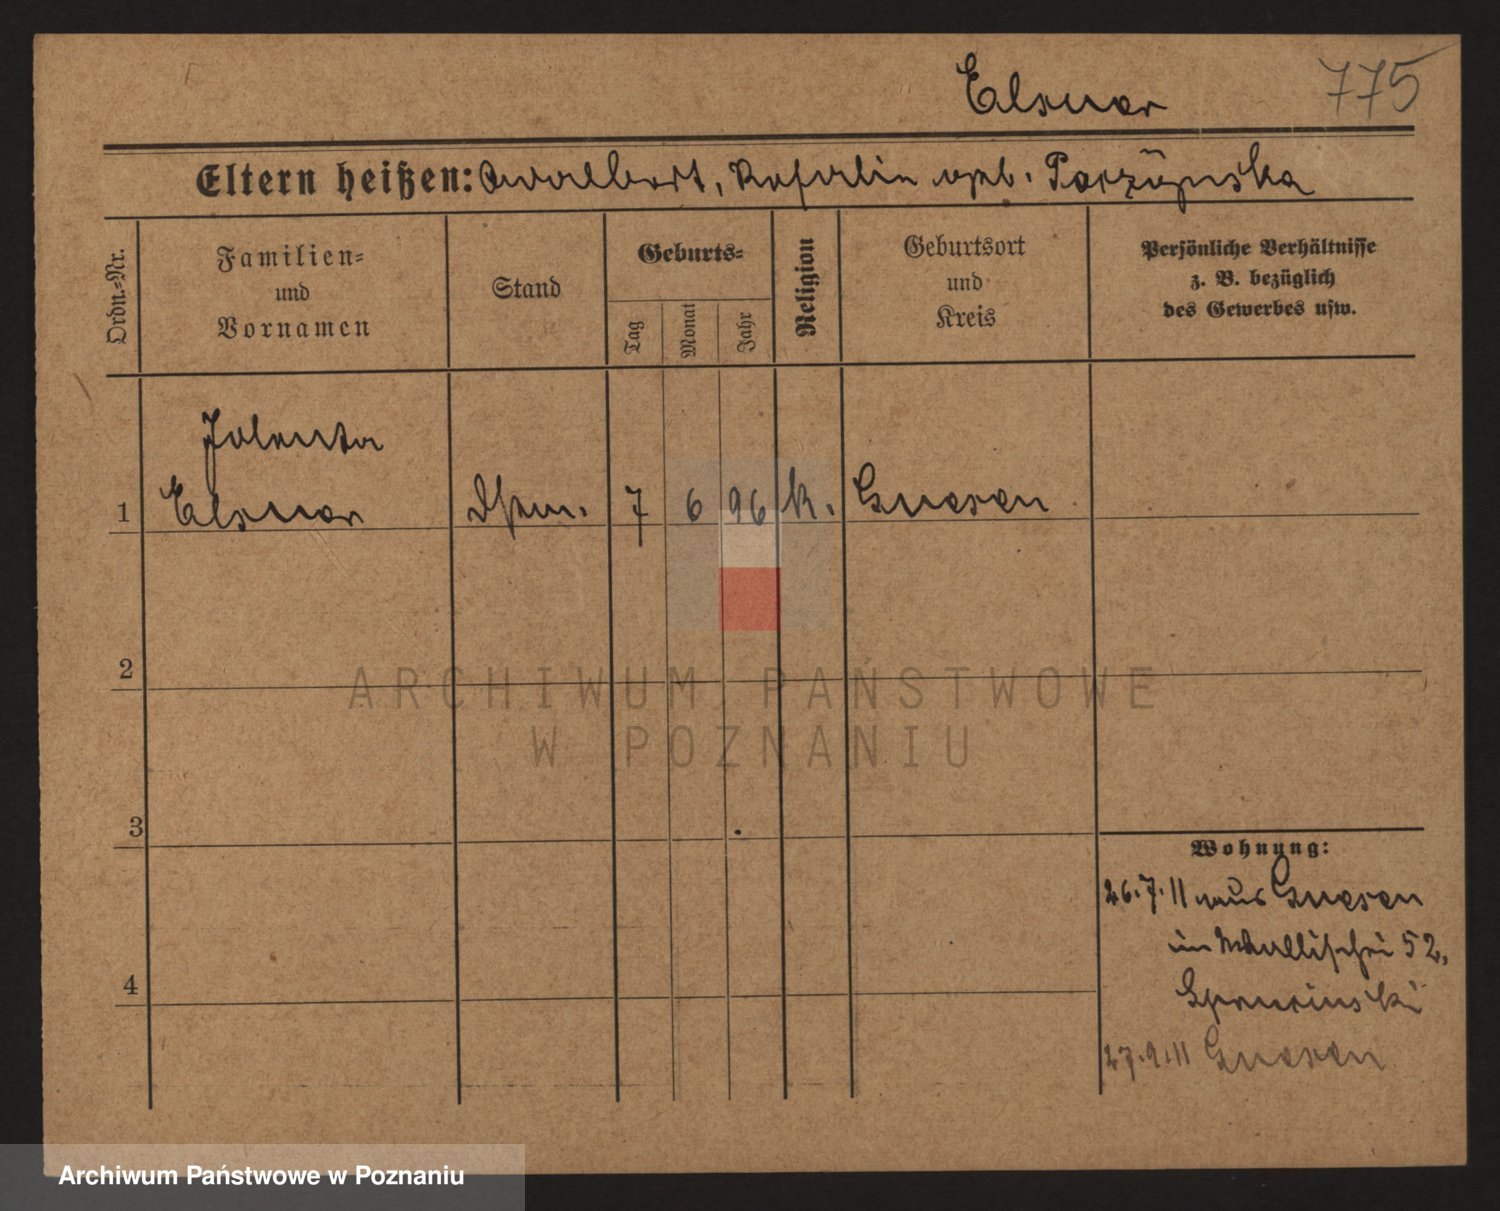 Elsner 775
Eltern heißen: Adalbert, Rosalie geb.
Ordn.-Nr.
Familien-
und
Vornamen
Stand
Geburts-
Tag
Monat
Jahr
Religion
Geburtsort
und
Kreis
Persönliche Verhältnisse
z. B. bezüglich
des Gewerbes usw.
Jolenta
1 Elsner 7 6 96 k. Gnesen
2
ARCHIWUM PAŃSTWOWE
W POZNANIU
3
Wohnung:
26.7.11 aus Gnesen
in Wallischei 52,
4
27.9.11 Gnesen
Archiwum Państwowe w Poznaniu